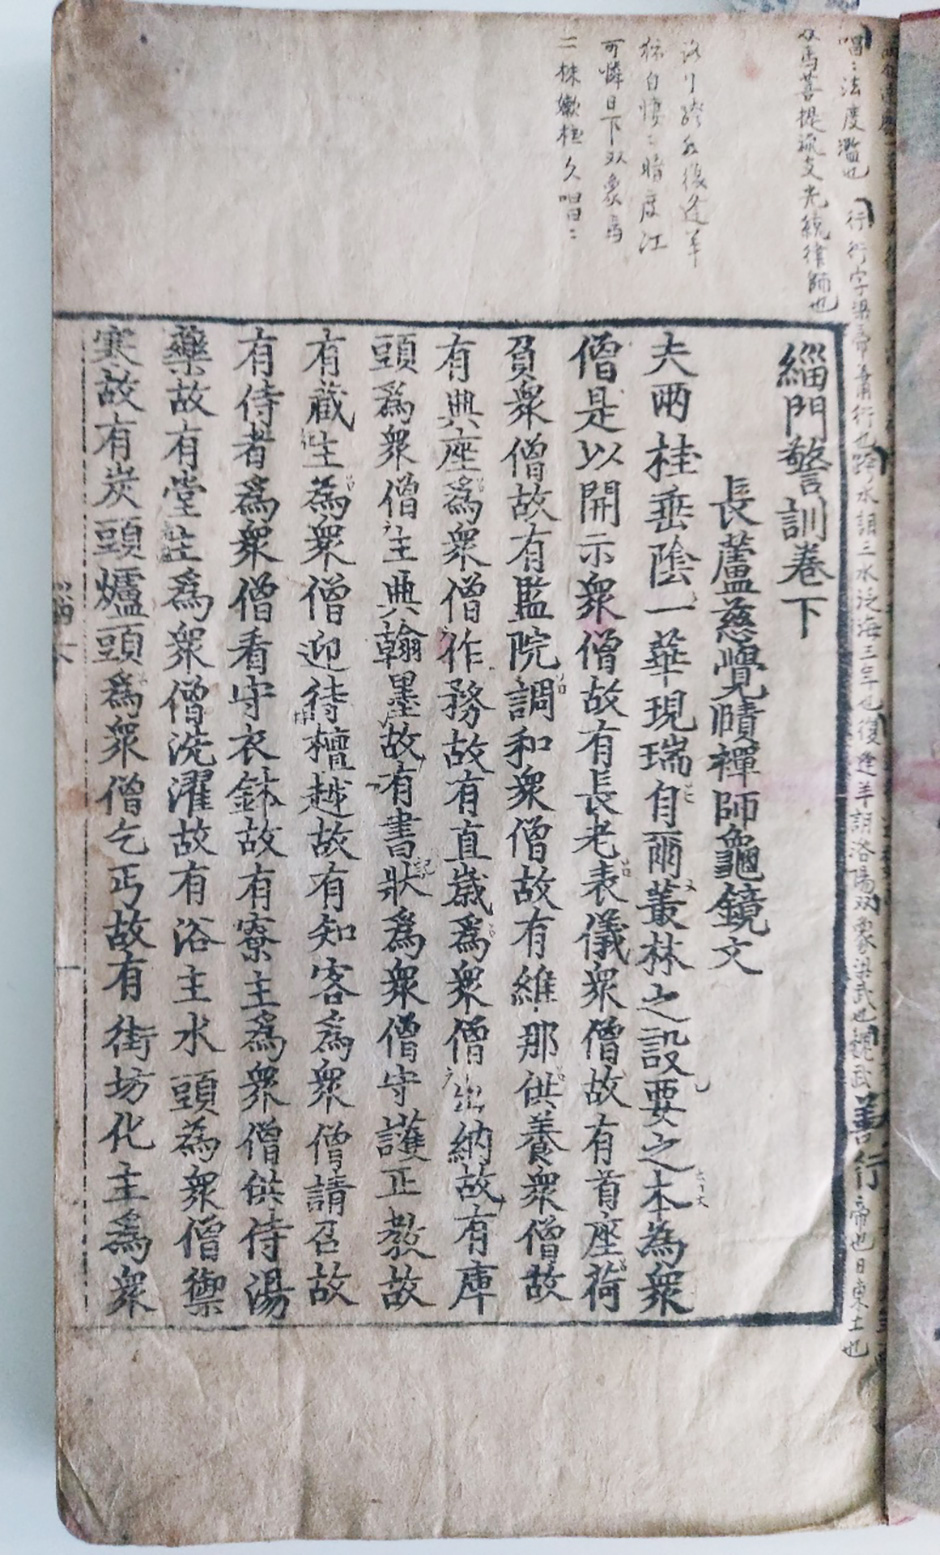 緇門警訓卷下
長蘆慈覺賾禪師龜鏡文
夫兩桂垂陰一華現瑞自爾叢林之設要之本為衆
僧是以開示衆僧故有長老表儀衆僧故有首座荷
負衆僧故有監院調和衆僧故有維那供養衆僧故
有典座爲衆僧作務故有直歲爲衆僧出納故有庫
頭爲衆僧主典翰墨故有書狀爲衆僧守護正教故
有藏主爲衆僧迎待檀越故有知客爲衆僧請召故
有侍者爲衆僧看守衣鉢故有寮主爲衆僧供侍湯
藥故有堂主爲衆僧洗濯故有浴主水頭為衆僧禦
寒故有炭頭爐頭爲衆僧乞丐故有街坊化主爲衆
唱〻法度濫也 行行字
菩提流支光統律師也
水詶三水泛海三年也復逢羊詶洛陽双象梁武也
帝也日東土也
復逢羊
暗度江
可憐日下双象馬
二株嫩桂久唱〻